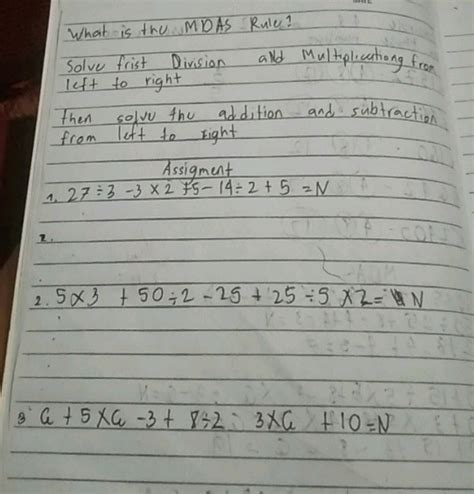 What is the MDAS Rule?
Solve frist Division and Multiplicationg from
left to right
then solve the addition and subtraction
from left to right
Assigment
1. 27÷3 -3×2 +5-14÷2+5 =N
2.
2. 5×3 +50÷2 -25 + 25 ÷5 ×2= N
3 6 +5×6 -3+ 8÷2 3×6 +10=N